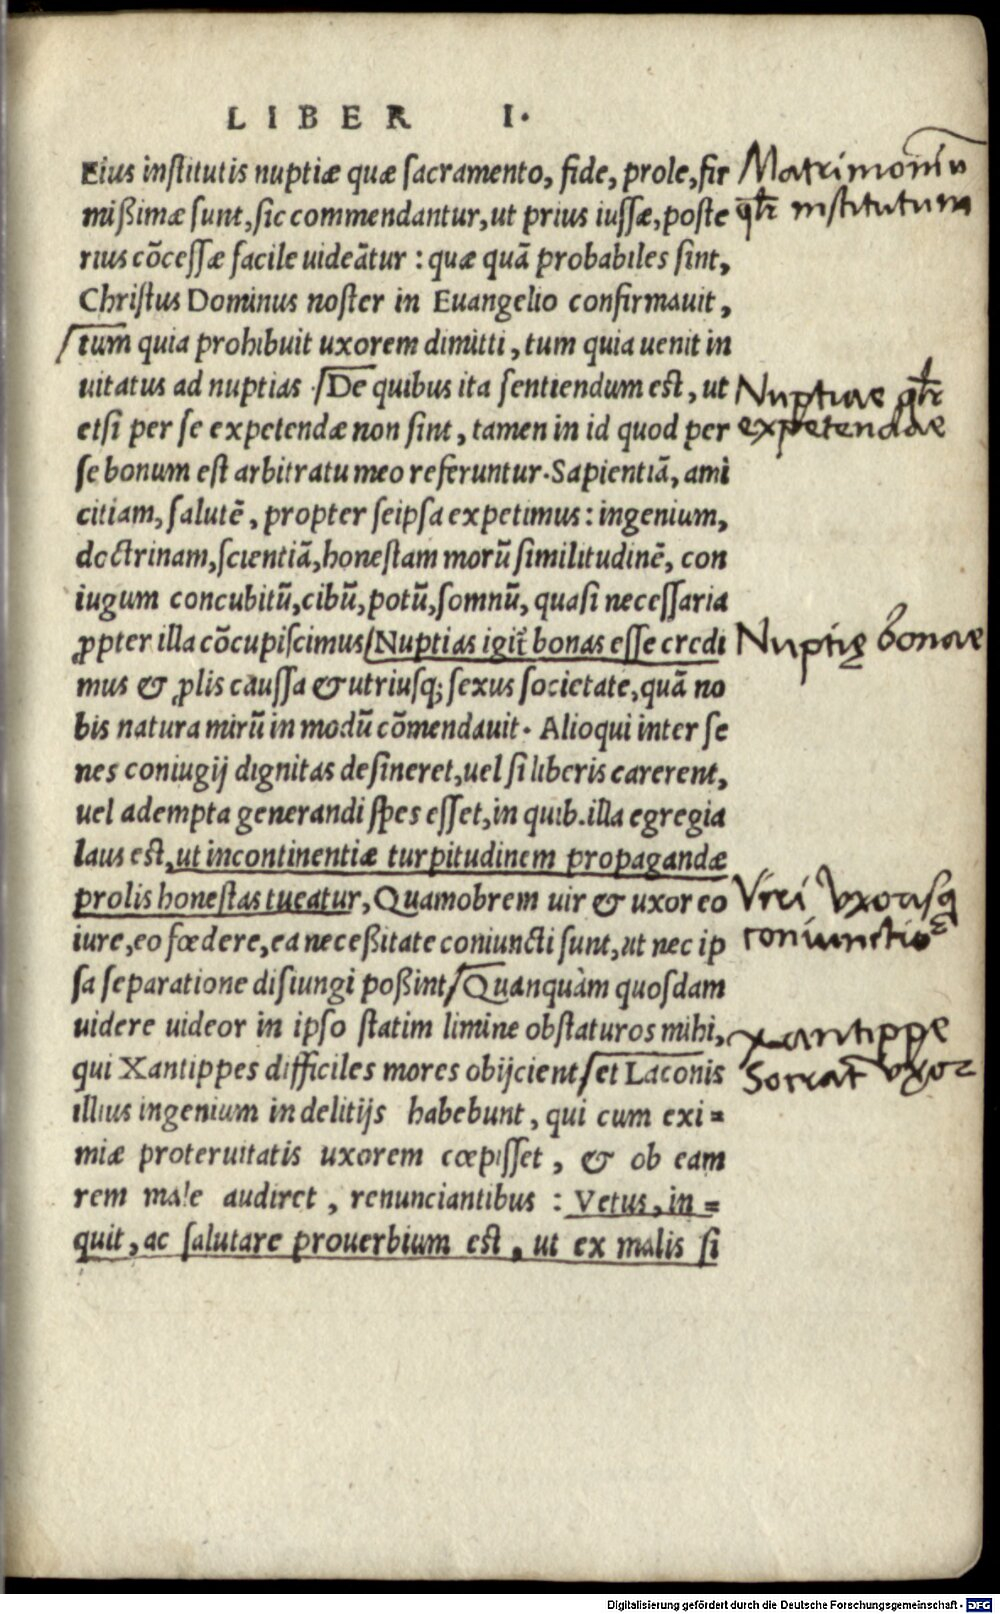 LIBER I.
Eius institutis nuptiæ quæ sacramento, fide, prole, fir
mißimæ sunt, sic commendantur, ut prius iussæ, poste
rius cõcessæ facile uideãtur : quæ quã probabiles sint,
Christus Dominus noster in Euangelio confirmauit,
tum quia prohibuit uxorem dimitti, tum quia uenit in
uitatus ad nuptias. De quibus ita sentiendum est, ut
etsi per se expetendæ non sint, tamen in id quod per
se bonum est arbitratu meo referuntur. Sapientiã, ami
citiam, salutẽ, propter seipsa expetimus: ingenium,
doctrinam, scientiã, honestam morũ similitudinẽ, con
iugum concubitũ, cibũ, potũ, somnũ, quasi necessaria
ꝓpter illa cõcupiscimus. Nuptias igit̃ bonas esse credi
mus & ꝓlis caussa & utriusq; sexus societate, quã no
bis natura mirũ in modũ cõmendauit. Alioqui inter se
nes coniugij dignitas desineret, uel si liberis carerent,
uel adempta generandi spes esset, in quib. illa egregia
laus est, ut incontinentiæ turpitudinem propagandæ
prolis honestas tueatur, Quamobrem uir & uxor eo
iure, eo fœdere, ea neceßitate coniuncti sunt, ut nec ip
sa separatione disiungi poßint, Quanquàm quosdam
uidere uideor in ipso statim limine obstaturos mihi,
qui Xantippes difficiles mores obijcient, et Laconis
illius ingenium in delitijs habebunt, qui cum exi=
miæ proteruitatis uxorem cœpisset, & ob eam
rem male audiret, renunciantibus : Vetus, in=
quit, ac salutare prouerbium est, ut ex malis si
Matrimoniũ
qlr institutum
Nuptiae qlr
expetendae
Nuptię bonae
Viri Vxorisq
coniunctio
Xantippe
Socrat uxor
Digitalisierung gefördert durch die Deutsche Forschungsgemeinschaft - DFG